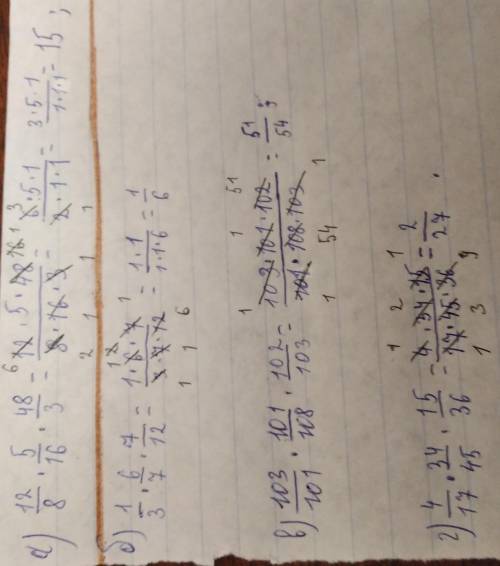 а) 12/8 · 5/16 · 48/3 = 12·5·48/8·16·3 = 6·5·1/2·1·1 = 3·5·1/1·1·1 = 15;
б) 1/3 · 6/7 · 7/12 = 1·6·7/3·7·12 = 1·1/1·1·6 = 1/6
в) 103/101 · 101/108 · 102/103 = 103·101·102/101·108·103 = 51/54;
г) 4/17 · 34/45 · 15/36 = 4·34·15/17·45·36 = 2/27.